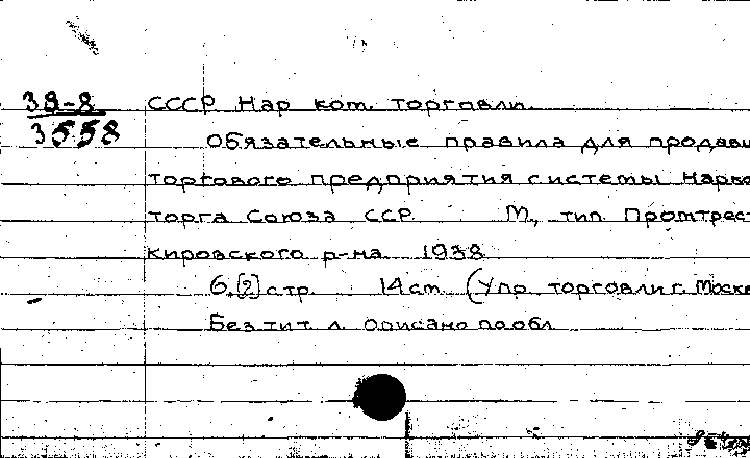 38-8
3558
СССР Нар ком. торговли.
Обязательные правила для продавц
торгового предприятия системы Нарко
торга Союза ССР. М., тип. Промтрест
кировского р-на. 1938
6,[2] стр. 14 см. (Упр. торговли г. Москв
Без тит. л. Описано по обл